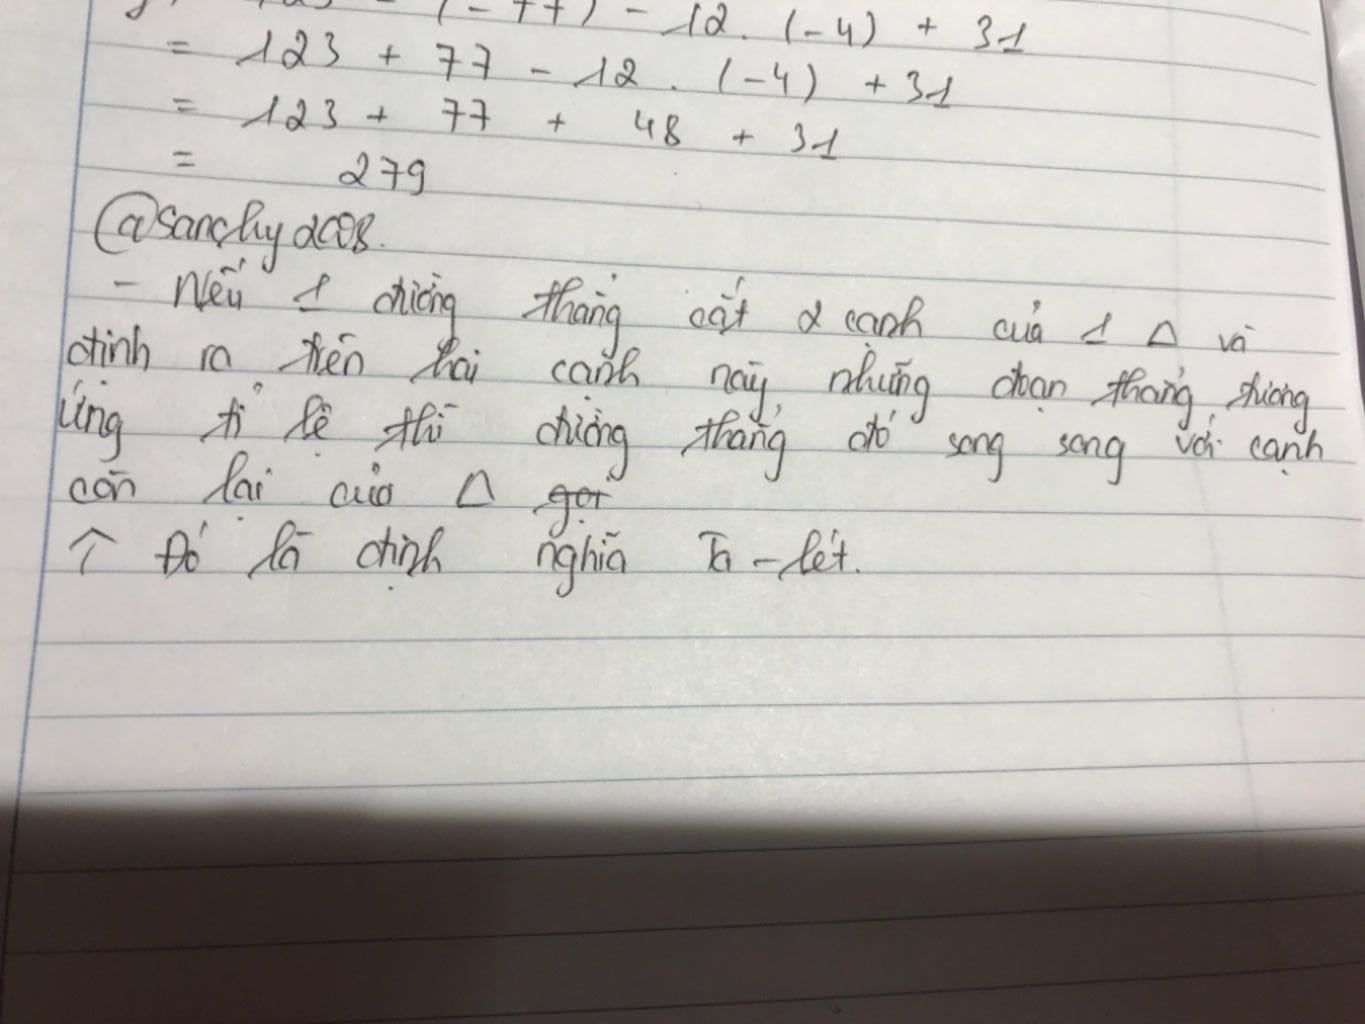 (-77) - 12 . (-4) + 31
= 123 + 77 - 12 . (-4) + 31
= 123 + 77 + 48 + 31
= 279
@sanchy2008.
- Nếu 1 đường thẳng cắt 2 cạnh của 1 Δ và
định ra trên hai cạnh này, những đoạn thẳng tương
ứng tỉ lệ thì đường thẳng đó song song với cạnh
còn lại của Δ gọi
↑ Đó là định nghĩa Ta-lét.